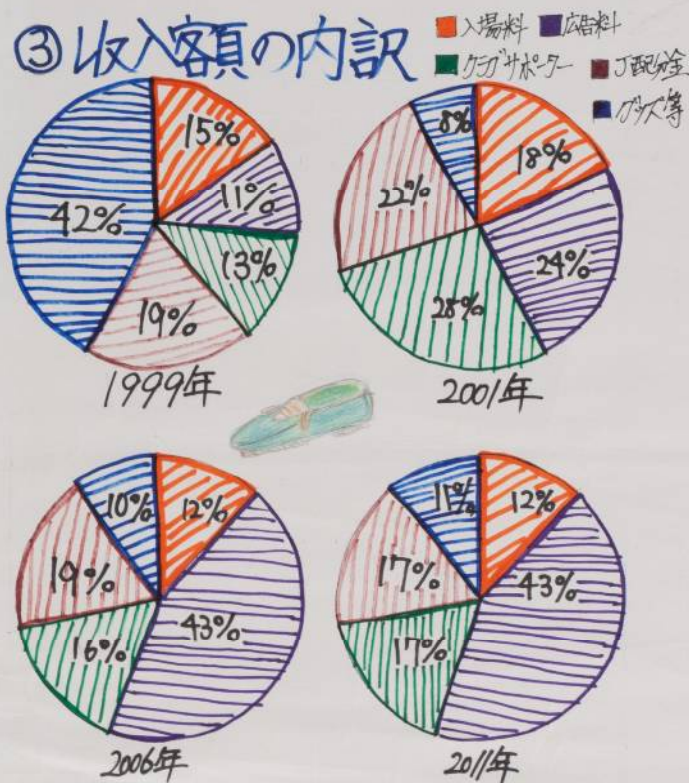 ③収入額の内訳
入場料 広告料
クラブサポーター J配分金
グッズ等
15%
11%
13%
19%
42%
1999年
18%
24%
28%
22%
8%
2001年
12%
43%
16%
19%
10%
2006年
12%
43%
17%
17%
11%
2011年